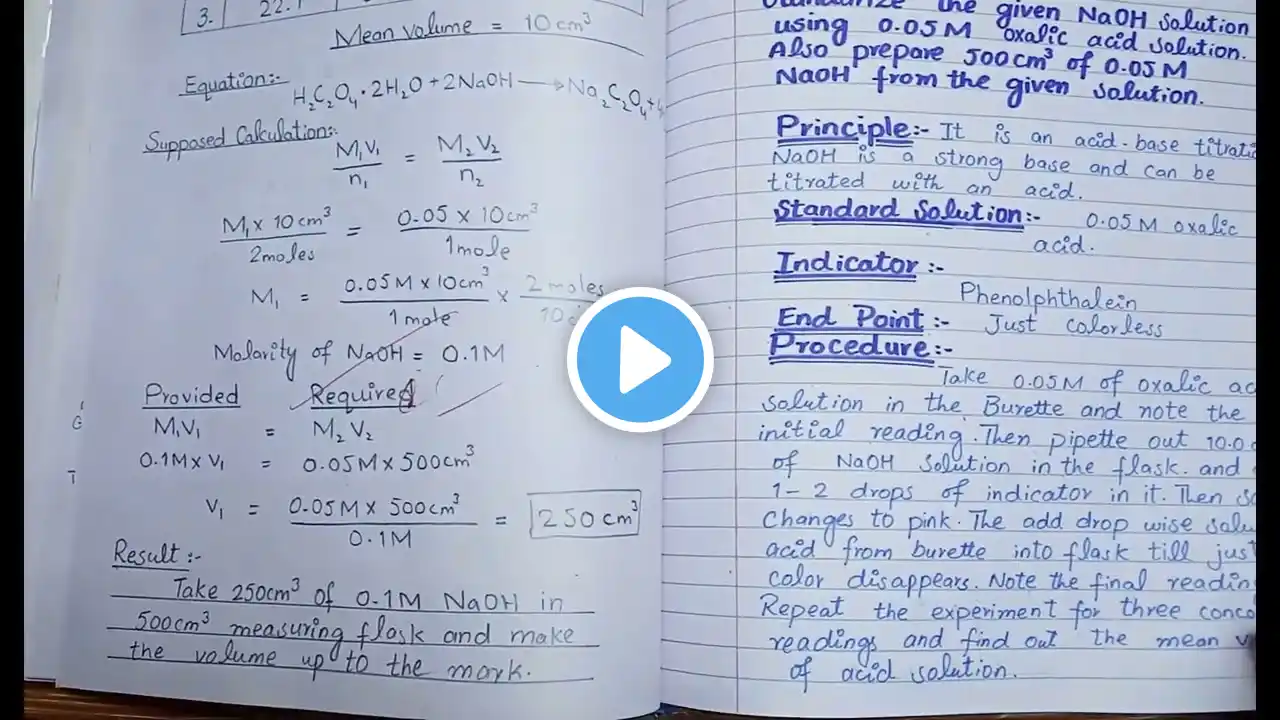 3. 22.1
Mean volume = 10 cm³
Equation:-
H₂C₂O₄·2H₂O + 2NaOH → Na₂C₂O₄ +
Supposed Calculation:-
M₁V₁ / n₁ = M₂V₂ / n₂
M₁ x 10 cm³ / 2moles = 0.05 x 10 cm³ / 1mole
M₁ = 0.05 M x 10cm³ / 1 mole x 2 moles / 10
Molarity of NaOH = 0.1M
Provided Required
M₁V₁ = M₂V₂
0.1M x V₁ = 0.05M x 500cm³
V₁ = 0.05M x 500cm³ / 0.1M = 250 cm³
Result :-
Take 250cm³ of 0.1M NaOH in
500cm³ measuring flask and make
the volume up to the mark.
the given NaOH solution
using 0.05M oxalic acid solution.
Also prepare 500cm³ of 0.05M
NaOH from the given solution.
Principle:- It is an acid-base
NaOH is a strong base and can be
titrated with an acid.
Standard Solution:- 0.05M oxalic
acid.
Indicator :-
Phenolphthalein
End Point :- Just Colorless
Procedure:-
Take 0.05M of oxalic
solution in the Burette and note the
initial reading. Then pipette out 10.0
of NaOH solution in the flask. and
1-2 drops of indicator in it. Then
changes to pink. The add drop wise
acid from burette into flask till just
color disappears. Note the final
Repeat the experiment for three
readings and find out the mean
of acid solution.